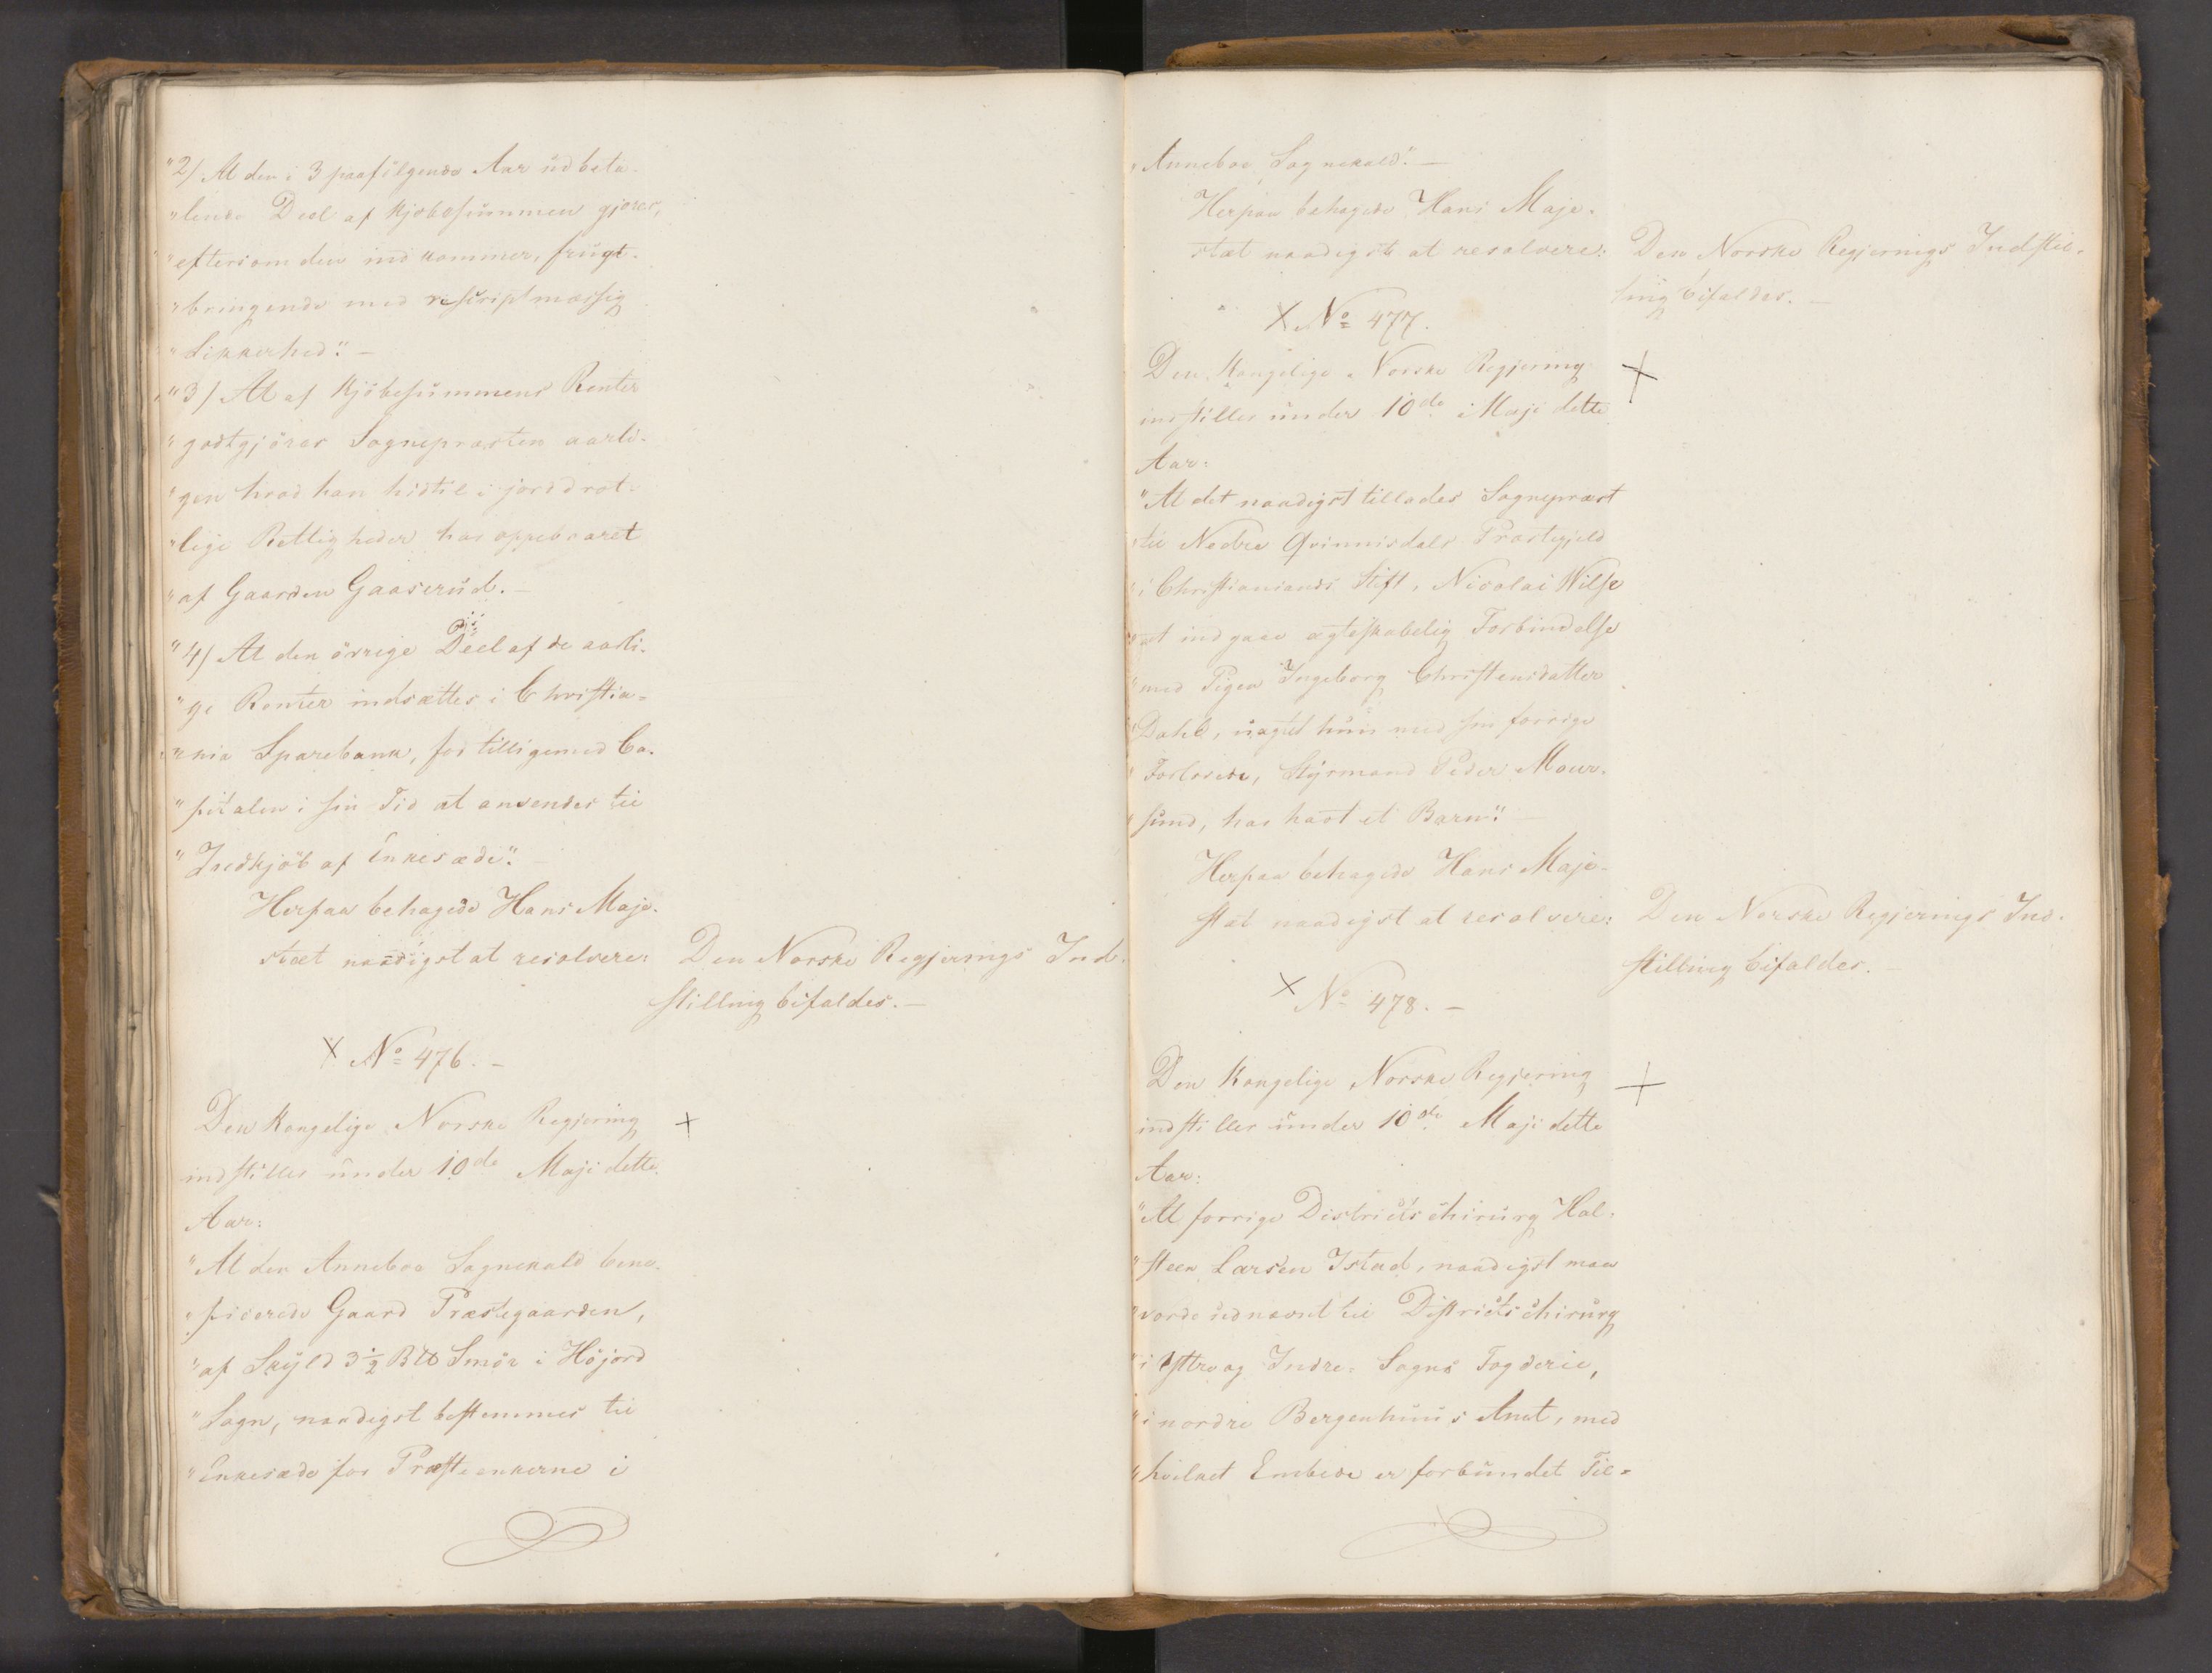 "2/ At den i 3 paafölgende Aar udbeta-
"lende Deel af Kjøbesummen gjøres,
"eftersom den indkommer, frugt-
"bringende med rescriptmæssig
"Sikkerhed". -
"3/ At af Kjöbesummens Renter
"godtgjöres Sognepræsten aarli-
"gen hvad han hidtil i jorddrot-
"lige Rettigheder har oppebaaret
"af Gaarden Gaaserud. -
"4/ At den övrige Deel af de aarli-
"ge Renter indsættes i Christia-
"nia Sparebank, for tilligemed Ca-
"pitalen i sin Tid at anvendes til
"Indkjöb af Enkesæde". -
Herpaa behagede Hans Maje-
stæt naadigst at resolvere:
Den Norske Regjerings Ind-
stilling bifaldes. -
X No 476. -
Den Kongelige Norske Regjering
indstiller under 10de Maji dette
Aar:
"At den Anneboe Sognekald bene-
"ficerede Gaard Præstegaarden,
"af Skyld 3 1/2 B℔ Smör i Höjord
"Sogn, naadigst bestemmes til
"Enkesæde for Præsteenkerne i
"Anneboe Sognekald". -
Herpaa behagede Hans Maje-
stæt naadigst at resolvere:
Den Norske Regjerings Indstil-
ling bifaldes. -
X No 477.
Den Kongelige Norske Regjering
indstiller under 10de Maji dette
Aar:
"At det naadigst tillades Sognepræst
"til Nedre Qvinnisdals Præstegjeld
"i Christiansands Stift, Nicolai Wilse
"at indgaae ægteskabelig Forbindelse
"med Pigen Ingeborg Christensdatter
"Dahl, uagtet hun med sin forrige
"Forlovede, Styrmand Peder Mour-
"sund, har havt et Barn". -
Herpaa behagede Hans Maje-
stæt naadigst at resolvere:
Den Norske Regjerings Ind-
stilling bifaldes. -
X No 478. -
Den Kongelige Norske Regjering
indstiller under 10de Maji dette
Aar:
"At forrige Districtschirurg Hal-
"steen Larsen Istad, naadigst maa
"vorde udnævnt til Districtschirurg
"i Yttre og Indre-Sogns Fogderie,
"i nordre Bergenhuus Amt, med
"hvilket Embede er forbundet Til-